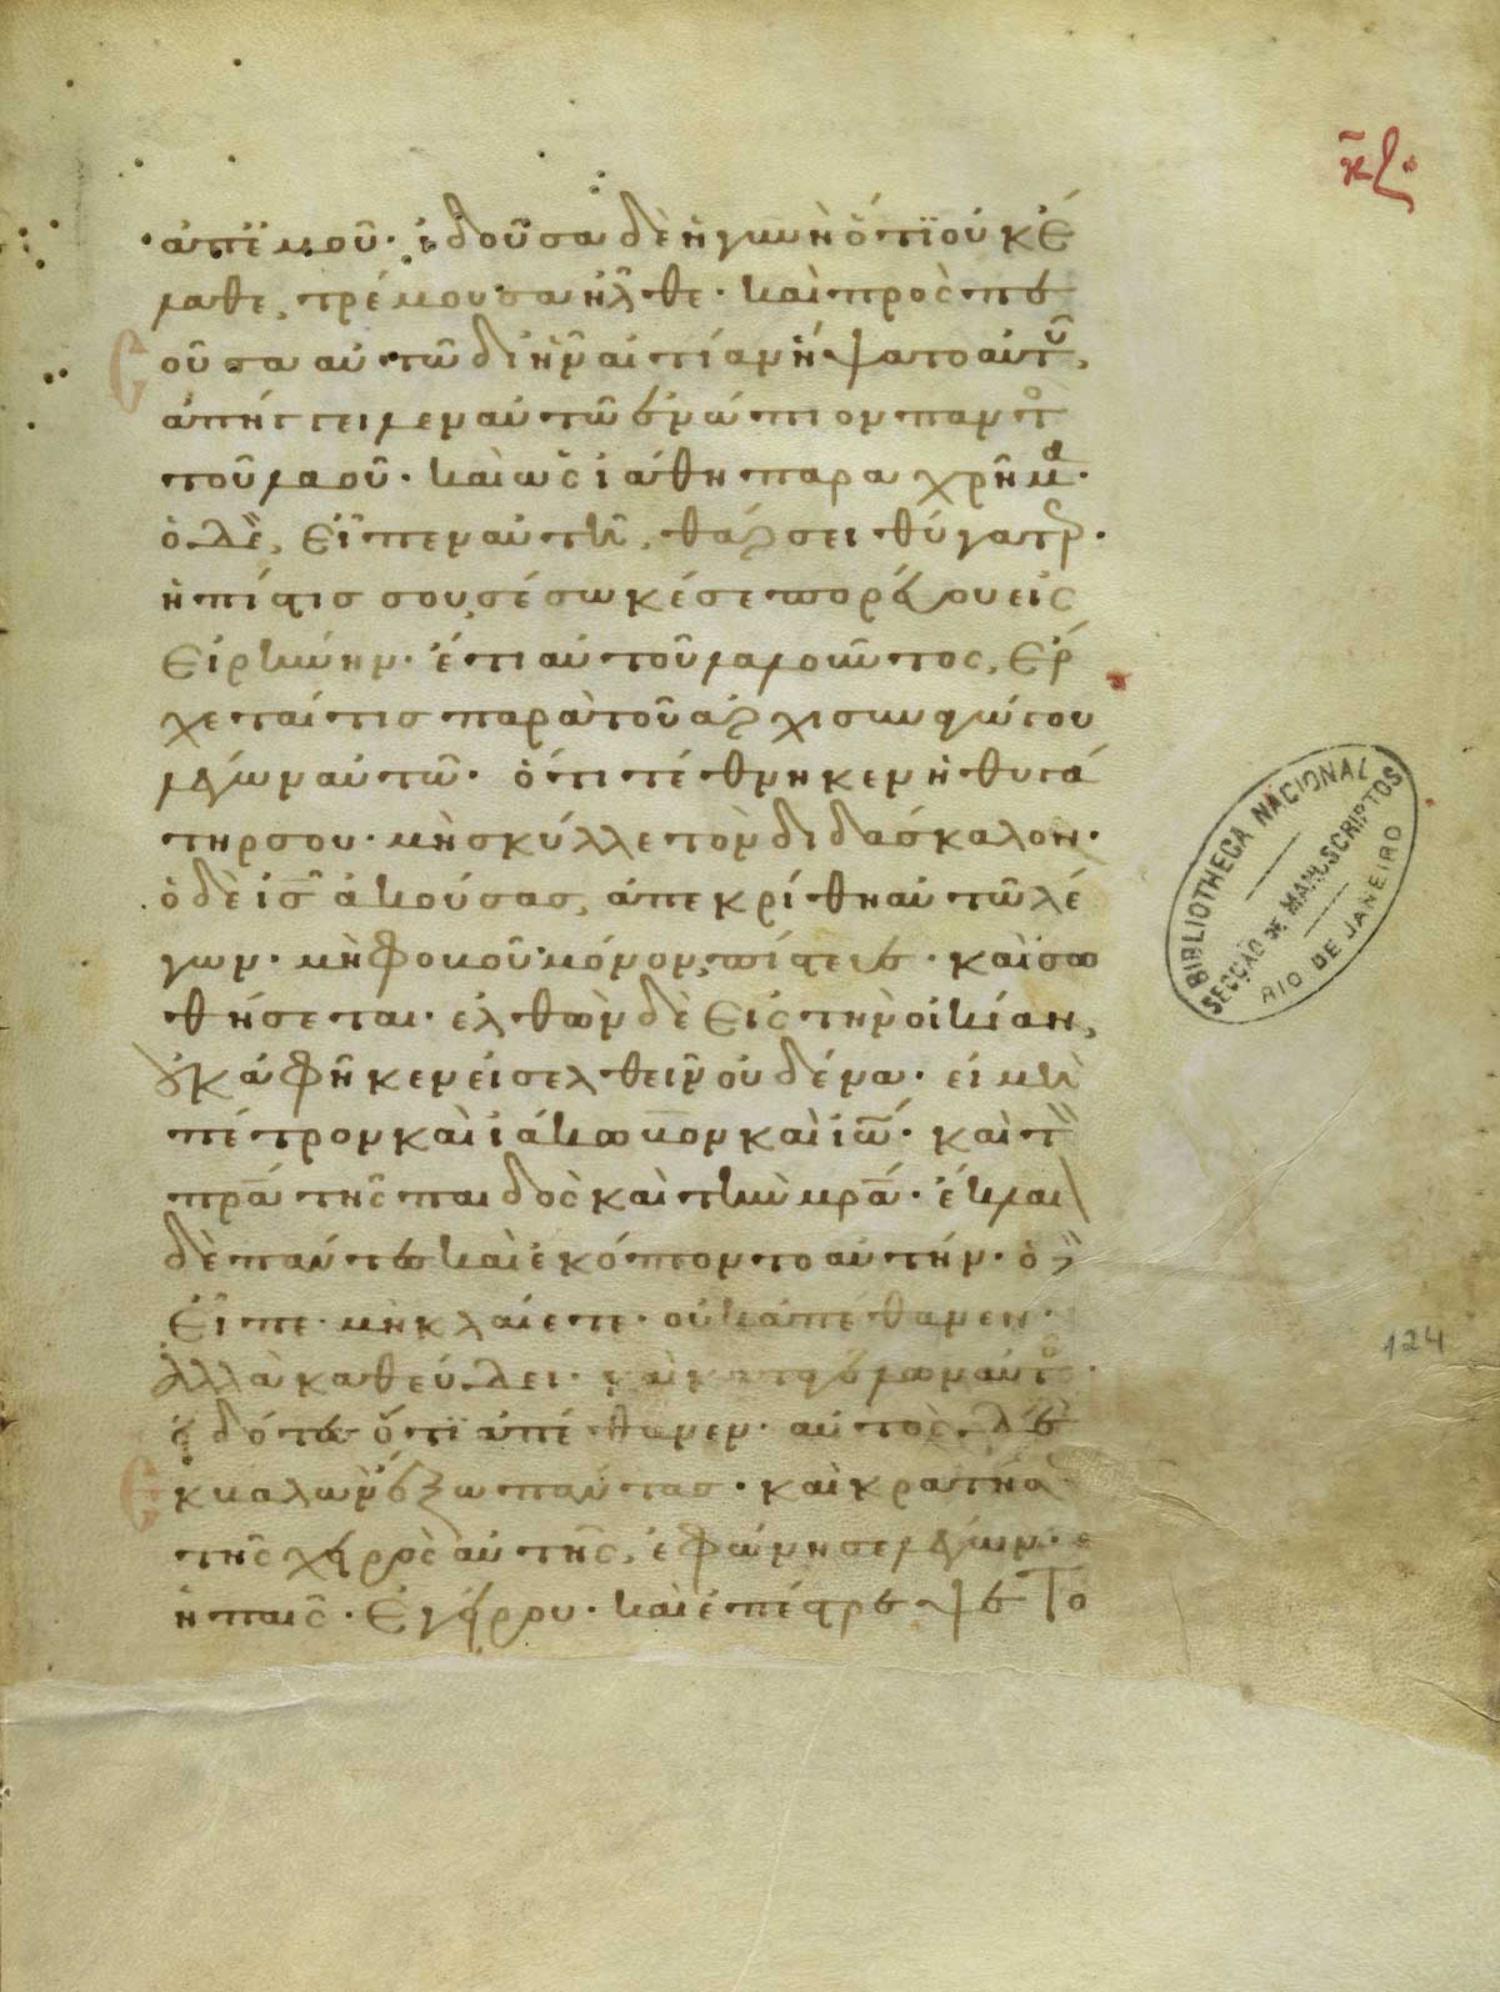 κζ
ἀπ' ἐμοῦ· ἰδοῦσα δὲ ἡ γυνὴ ὅτι οὐκ ἔ
λαθε, τρέμουσα ἦλθε· καὶ προσπε
σοῦσα αὐτῶ δι ἣν αἰτίαν ἥψατο αὐτοῦ,
ἀπήγγειλεν αὐτῶ ἐνώπιον παντὸ
τοῦ λαοῦ· καὶ ὡς ἰάθη παραχρῆμα·
ὁ δὲ, εἶπεν αὐτῆ, θάρσει θύγατερ·
ἡ πίστις σου σέσωκέ σε πορεύου εἰς
εἰρήνην· ἔτι αὐτοῦ λαλοῦντος, ἔρ
χεταί τις παρὰ τοῦ ἀρχισυναγώγου
λέγων αὐτῶ· ὅτι τέθνηκεν ἡ θυγά
τηρ σου· μὴ σκύλλε τὸν διδάσκαλον·
ὁ δὲ ις ἀκούσας, ἀπεκρίθη αὐτῶ λέ
γων· μὴ φοβοῦ μόνον πίστευε· καὶ σω
θήσεται· ἐλθὼν δὲ εἰς τὴν οἰκίαν,
οὐκ ἀφῆκεν εἰσελθεῖν οὐδένα· εἰ μὴ
πέτρον καὶ ἰάκωβον καὶ ἰω· καὶ τὸν
πρα τῆς παιδὸς καὶ τὴν μρα· ἔκλαι
δὲ πάντες καὶ ἐκόπτοντο αὐτήν· ὁ δὲ
εἶπε· μὴ κλαίετε· οὐκ ἀπέθανεν·
ἀλλὰ καθεύδει· καὶ κατεγέλων αὐτοῦ·
εἰδότες ὅτι ἀπέθανεν· αὐτὸς δὲ ἐ
κβαλὼν ἔξω πάντας· καὶ κρατήσα
τῆς χειρὸς αὐτῆς, ἐφώνησε λέγων·
ἡ παῖς· ἐγείρου· καὶ ἐπέστρεψε τὸ
BIBLIOTHECA NACIONAL
SECÇÃO DE MANUSCRIPTOS
RIO DE JANEIRO
124